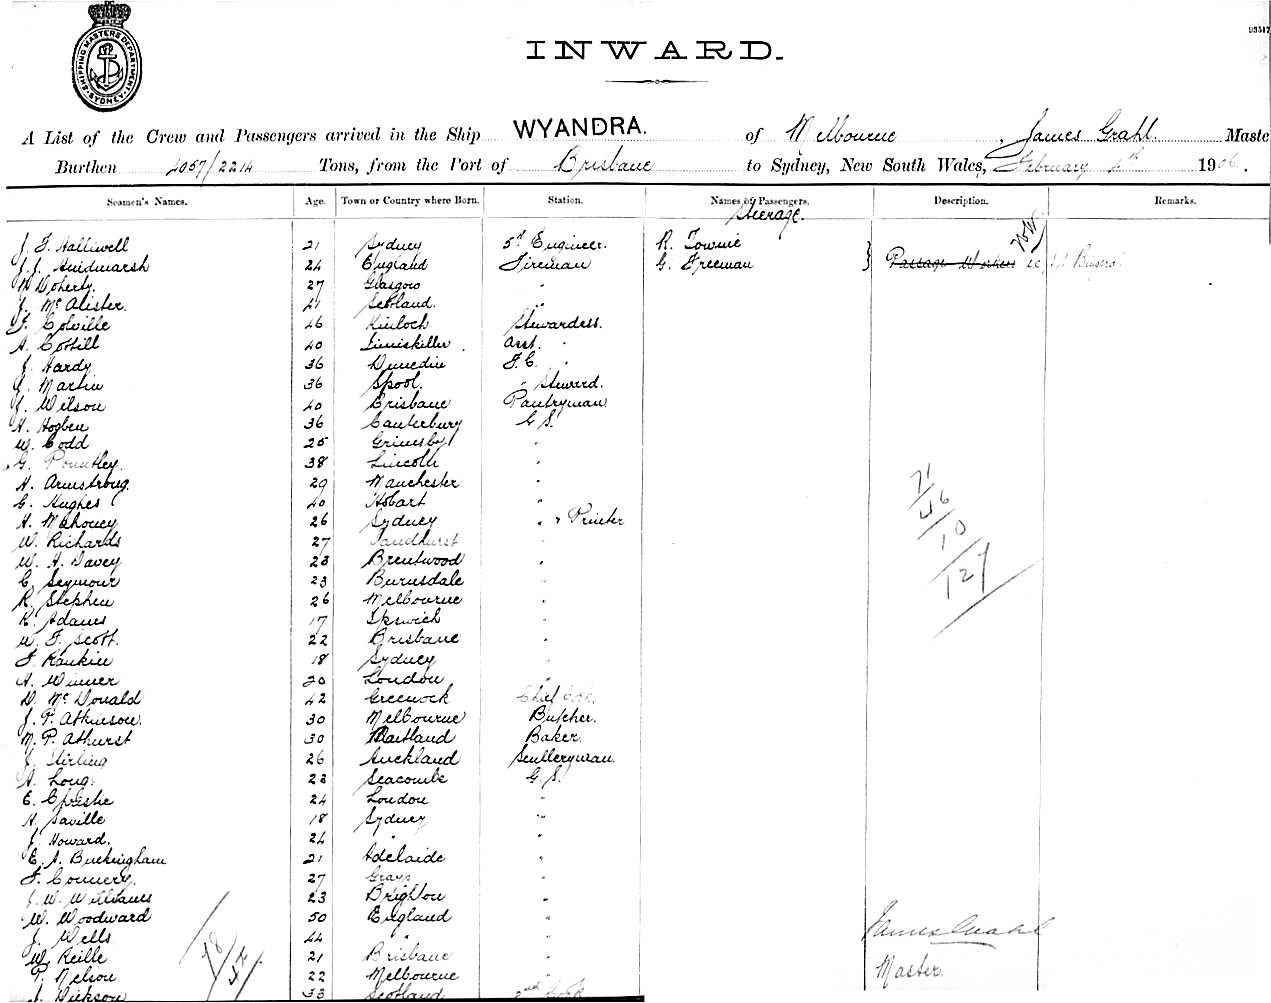 SHIPPING MASTERS DEPARTMENT. SYDNEY
INWARD.
A List of the Crew and Passengers arrived in the Ship WYANDRA. of Melbourne, James Grahl. Maste
Burthen 4057/2214 Tons, from the Port of Brisbane to Sydney, New South Wales, February 4th 1906.
Seamen's Names. Age. Town or Country where Born. Station. Names of Passengers. Description. Remarks.
Steerage.
J. F. Halliwell 21 Sydney 5th Engineer. R. Townie
J. J. Hindmarsh 24 England Fireman G. Freeman } Passage Workers
N Doherty. 27 Glasgow "
J. McAlister. 41 Scotland. "
F. Colville 46 Kinloch Stewardess.
A. Cottill 40 Asst. "
J. Hardy 36 Dunedin F.C. "
J. Martin 36 Spool. " Steward.
J. Wilson 40 Brisbane Pantryman
H. Hogben 36 Canterbury G.S.
W. Codd 25 Grimsby "
G. Pountley. 38 Lincoln "
H. Armstrong. 29 Manchester "
G. Hughes 40 Hobart "
H. Mahoney 26 Sydney " " Printer
W. Richards 27 Sandhurst "
W. H. Davey 23 Brentwood "
C. Seymour 23 Burnsdale "
R. Stephen 26 Melbourne "
R. Adams 17 Ipswich "
W. F. Scott. 22 Brisbane "
F. Rankin 18 Sydney "
A. Winner 20 London "
D. McDonald 42 Greenock Chief Cook.
J. P. Atkinson. 30 Melbourne Butcher.
M. P. Athurst 30 Maitland Baker.
J. Stirling 26 Auckland Sculleryman.
A. Long. 23 Seacombe G.S.
E. 24 London "
H. Saville 18 Sydney "
J. Howard. 24 " "
E. A. Buckingham 21 Adelaide "
F. Connery. 27 Grays "
J. W. Williams 23 Brighton "
W. Woodward 50 England "
J. Wells 44 " "
W. Reille 21 Brisbane "
P. Nelson 22 Melbourne "
J. Dickson 33 Scotland 2nd Cook
71/46/10/127
James Grahl
Master.